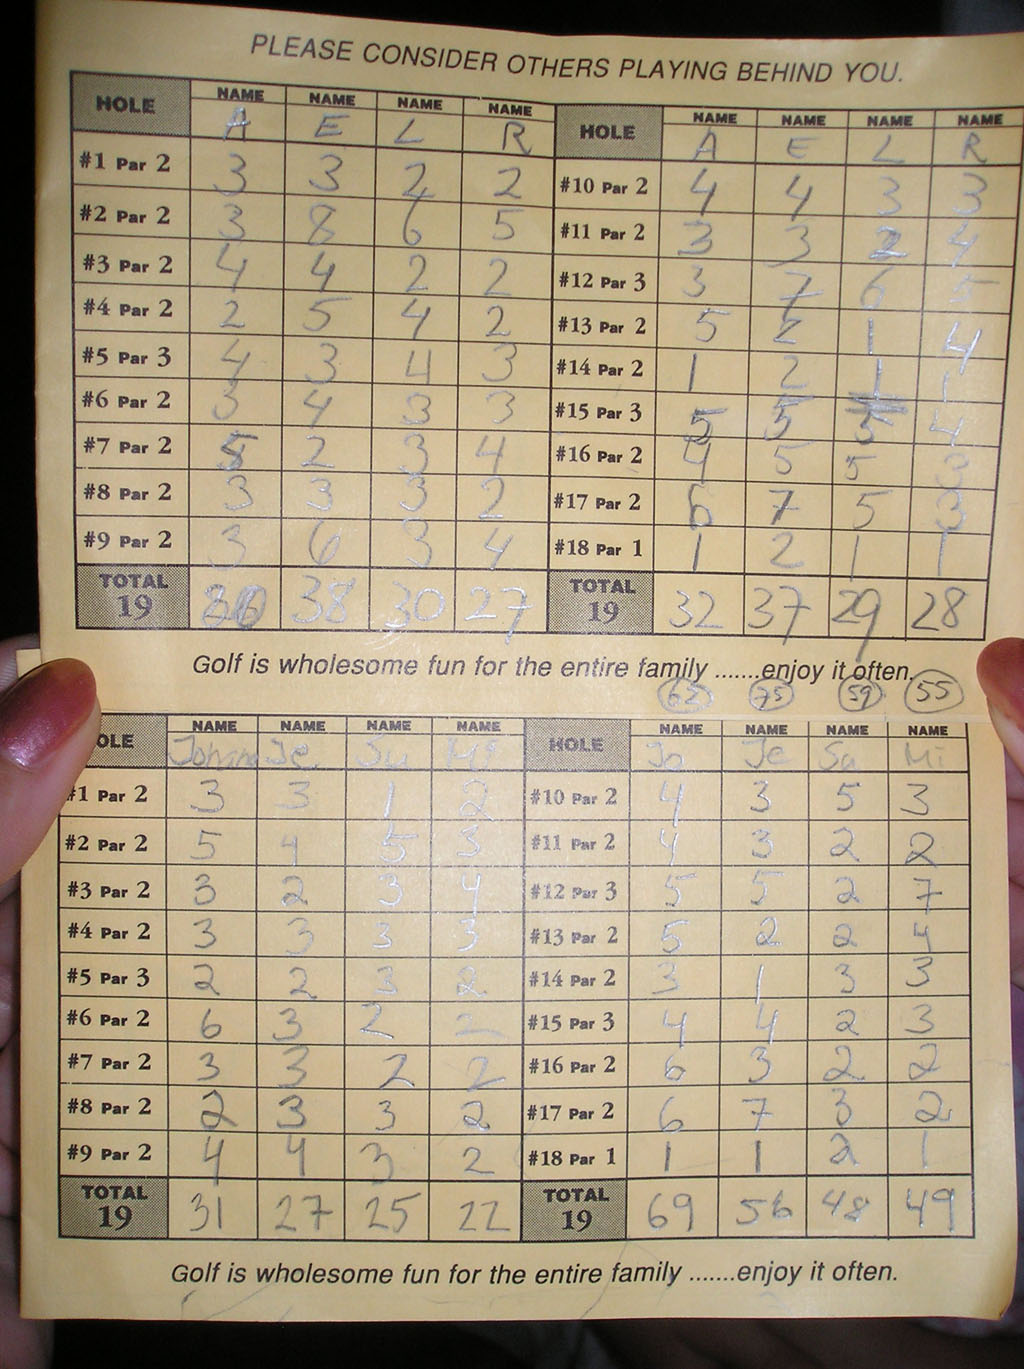 PLEASE CONSIDER OTHERS PLAYING BEHIND YOU.
HOLE NAME NAME NAME NAME HOLE NAME NAME NAME NAME
A E L R A E L R
#1 Par 2 3 3 2 2 #10 Par 2 4 4 3 3
#2 Par 2 3 8 6 5 #11 Par 2 3 3 2 4
#3 Par 2 4 4 2 2 #12 Par 3 3 7 6 5
#4 Par 2 2 5 4 2 #13 Par 2 5 2 1 4
#5 Par 3 4 3 4 3 #14 Par 2 1 2 1 1
#6 Par 2 3 4 3 3 #15 Par 3 5 5 5 4
#7 Par 2 5 2 3 4 #16 Par 2 4 5 5 3
#8 Par 2 3 3 3 2 #17 Par 2 6 7 5 3
#9 Par 2 3 6 3 4 #18 Par 1 1 2 1 1
TOTAL 19 30 38 30 27 TOTAL 19 32 37 29 28
Golf is wholesome fun for the entire family .......enjoy it often.
62 75 59 55
OLE NAME NAME NAME NAME HOLE NAME NAME NAME NAME
Je Su Mi Jo Je Su Mi
#1 Par 2 3 3 1 2 #10 Par 2 4 3 5 3
#2 Par 2 5 4 5 3 #11 Par 2 4 3 2 2
#3 Par 2 3 2 3 4 #12 Par 3 5 5 2 7
#4 Par 2 3 3 3 3 #13 Par 2 5 2 2 4
#5 Par 3 2 2 3 2 #14 Par 2 3 1 3 3
#6 Par 2 6 3 2 2 #15 Par 3 4 4 2 3
#7 Par 2 3 3 2 2 #16 Par 2 6 3 2 2
#8 Par 2 2 3 3 2 #17 Par 2 6 7 3 2
#9 Par 2 4 4 3 2 #18 Par 1 1 1 2 1
TOTAL 19 31 27 25 22 TOTAL 19 69 56 48 49
Golf is wholesome fun for the entire family .......enjoy it often.